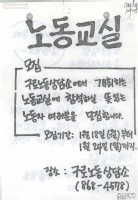 노동교실
모집
구로노동상담소에서 개최하는
노동교실에 참석하실 뜻있는
노동자 여러분을 모집합니다.
모집기간: 1월 12일(월)부터
1월 24일(일)까지.
장소: 구로노동상담소
(868-4578)